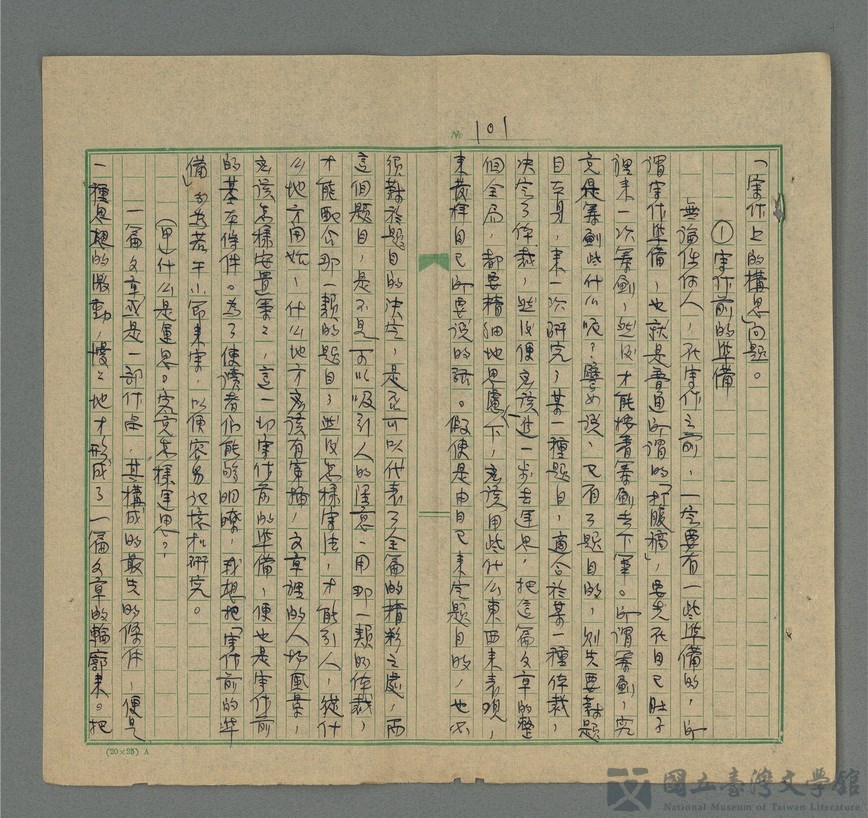 № 101
「寫作上的構思」問題。
①寫作前的準備
無論任何人，在寫作之前，一定要有一些準備的，所
謂寫作準備，也就是普通所謂的「打腹稿」，要先在自己肚子
裡來一次籌劃，然後才能按着籌劃去下筆。所謂籌劃，究
竟是籌劃些什么呢？譬如說，已有了題目的，則先要對題
目本身，來一次研究，某一種題目，適合於某一種体裁，
決定了体裁，然後便應該進一步去運思，把這篇文章的整
個全局，都要精細地思慮一下，應該用些什么東西來表現，
來發揮自己所要說的話。假使是由自己來定題目的，也必
須對於題目的決定，是否可以代表了全篇的精彩之處，而
這個題目，是不是可以吸引人的注意，用那一類的体裁，
才能配合那一類的題目，然後怎樣寫法，才能引人，從什
么地方開始，什么地方應該有穿插，文章裡的人物風景，
應該怎樣安置等々，這一切寫作前的準備，便也是寫作前
的基本條件。為了使讀者們能够明瞭，我想把「寫作前的準
備」分為若干小節來寫，以便容易記憶和研究。
（甲）什么是運思。究竟怎樣運思？
一篇文章或是一部作品，其構成的最先的條件，便是
一種思想的激動，慢々地才形成了一篇文章的輪廓來。把
(20×25) A
國立臺灣文學館
National Museum of Taiwan Literature